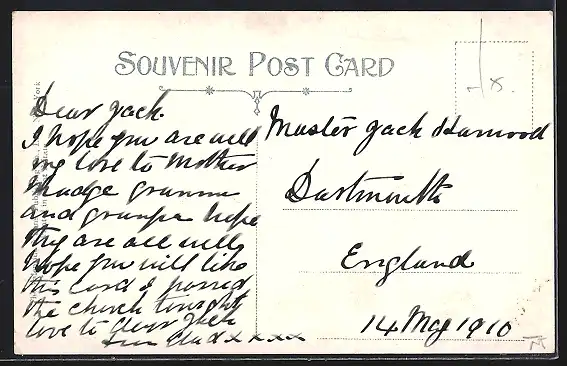 SOUVENIR POST CARD
Dear Jack.
I hope you are well
my love to Mother
Madge gramma
and grampa hope
they are all well
hope you will like
this card I passed
the church tonight
love to dear Jack
from dad x x x x
Master Jack Harwood
Dartmouth
England
14 May 1910